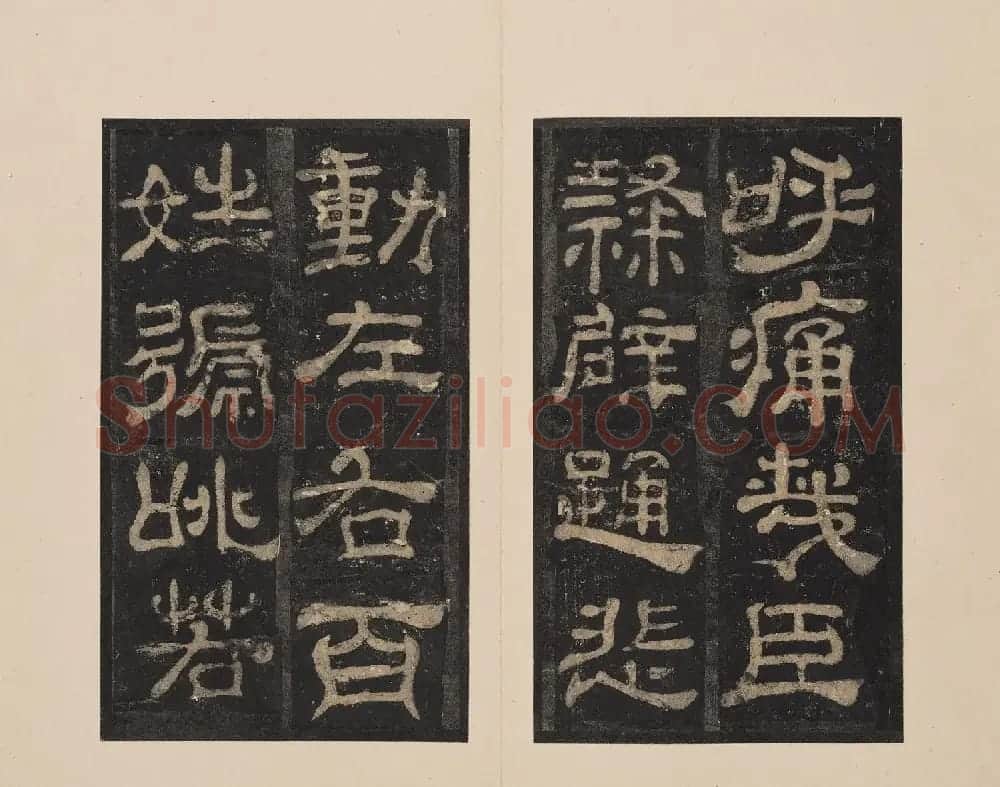 呼痛哉臣
隸辟踊悲
動左右百
姓號咷若
Shufaziliao.COM